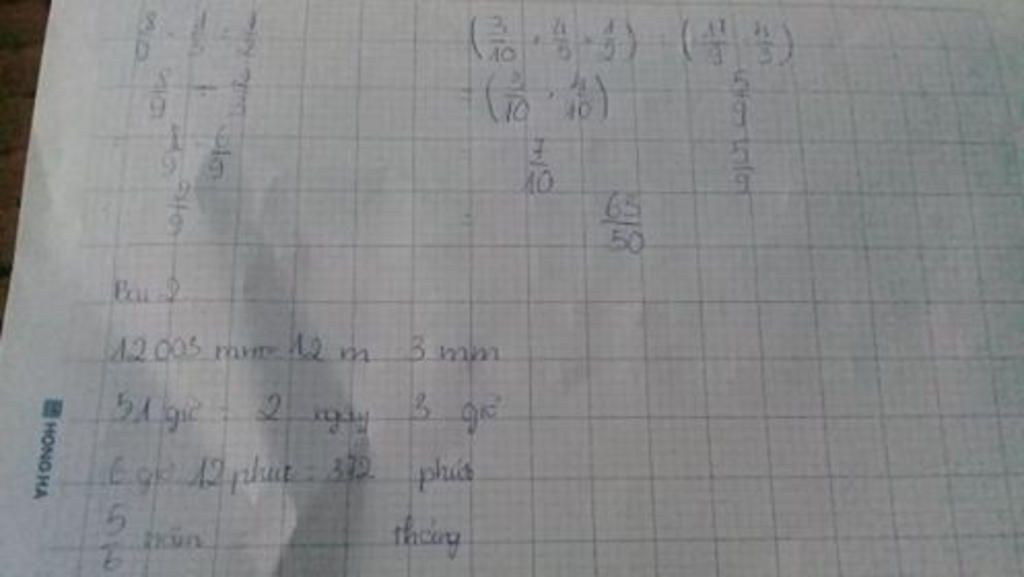 8/9 - 1/3 : 1/2
8/9 - 2/3
8/9 - 6/9
2/9
(3/10 + 4/5 × 1/2) : (11/9 4/3)
= (3/10 + 4/10) 5/9
7/10 5/9
= 65/50
Bài 2
12 003 mm = 12 m 3 mm
51 giờ = 2 ngày 3 giờ
6 giờ 12 phút = 372 phút
5/6 năm tháng
HONG HA